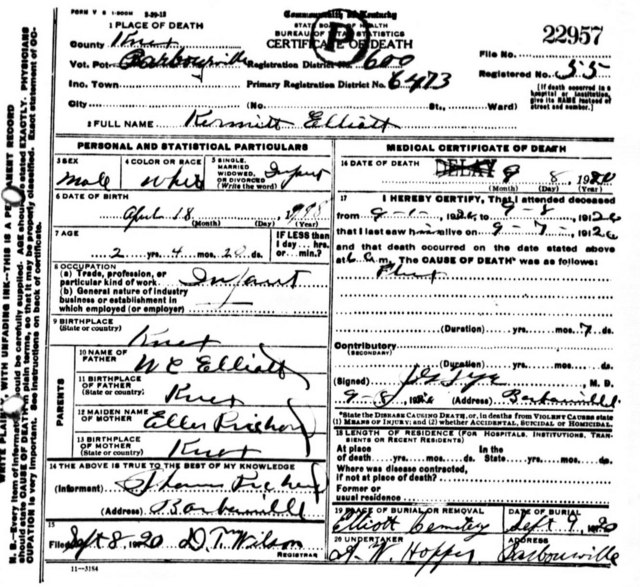 FORM V S 1-500M 5-29-15
Commonwealth of Kentucky
STATE BOARD OF HEALTH
BUREAU OF VITAL STATISTICS
CERTIFICATE OF DEATH
P
22957
1 PLACE OF DEATH
County Knox
Vot. Pct. Barbourville Registration District No. 600
File No.
Inc. Town Primary Registration District No. 6473
Registered No. 55
City (No. St., Ward)
[If death occurred in a hospital or institution, give its NAME instead of street and number.]
2 FULL NAME Kermitt Elliott
PERSONAL AND STATISTICAL PARTICULARS
3 SEX Male
4 COLOR OR RACE White
5 SINGLE, MARRIED WIDOWED, OR DIVORCED (Write the word) Infant
6 DATE OF BIRTH
April 18
(Month) (Day) (Year)
7 AGE
2 yrs. 4 mos. 20 ds.
IF LESS than 1 day... hrs. or... min.?
8 OCCUPATION
(a) Trade, profession, or particular kind of work Infant
(b) General nature of industry business or establishment in which employed (or employer)
9 BIRTHPLACE
(State or country) Knox
PARENTS
10 NAME OF FATHER W C Elliott
11 BIRTHPLACE OF FATHER
(State or country) Knox
12 MAIDEN NAME OF MOTHER Ellen
13 BIRTHPLACE OF MOTHER
(State or country) Knox
14 THE ABOVE IS TRUE TO THE BEST OF MY KNOWLEDGE
(Informant)
(Address) Barbourville
15
Filed Sept 8, 1920 D. T. Wilson
11-3184
MEDICAL CERTIFICATE OF DEATH
16 DATE OF DEATH DELAY 9 8
(Month) (Day) (Year)
17 I HEREBY CERTIFY, That I attended deceased
from 9-1- to 9-8-
that I last saw him alive on 9-7-
and that death occurred on the date stated above
at 6 a.m. The CAUSE OF DEATH* was as follows:
Flux
(Duration) yrs. mos. 7 ds.
Contributory
(SECONDARY)
(Duration) yrs. mos. ds.
(Signed) M. D.
9-8 (Address) Barbourville
*State the DISEASE CAUSING DEATH, or, in deaths from VIOLENT CAUSES state (1) MEANS OF INJURY; and (2) whether ACCIDENTAL, SUICIDAL or HOMICIDAL.
18 LENGTH OF RESIDENCE (FOR HOSPITALS, INSTITUTIONS, TRANSIENTS OR RECENT RESIDENTS)
At place of death yrs. mos. ds. In the State yrs. mos. ds.
Where was disease contracted, if not at place of death?
Former or usual residence
19 PLACE OF BURIAL OR REMOVAL
Elliott Cemetery
DATE OF BURIAL
Sept 9, 1920
20 UNDERTAKER
A. W. Hopper
ADDRESS
Barbourville